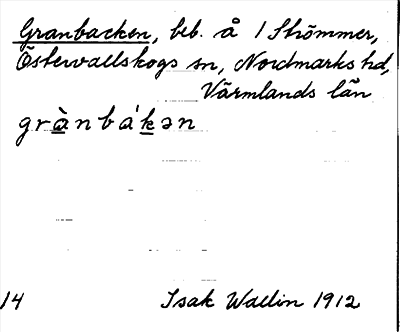 Granbacken, beb. å 1 Strömmer,
Östervallskogs sn, Nordmarks hd,
Värmlands län
grànbákən
14 Isak Wallin 1912